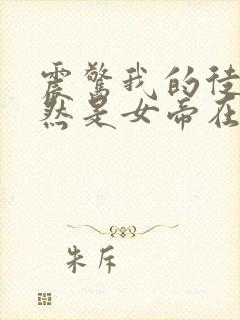 震惊我的徒
然是女帝在
朱斥